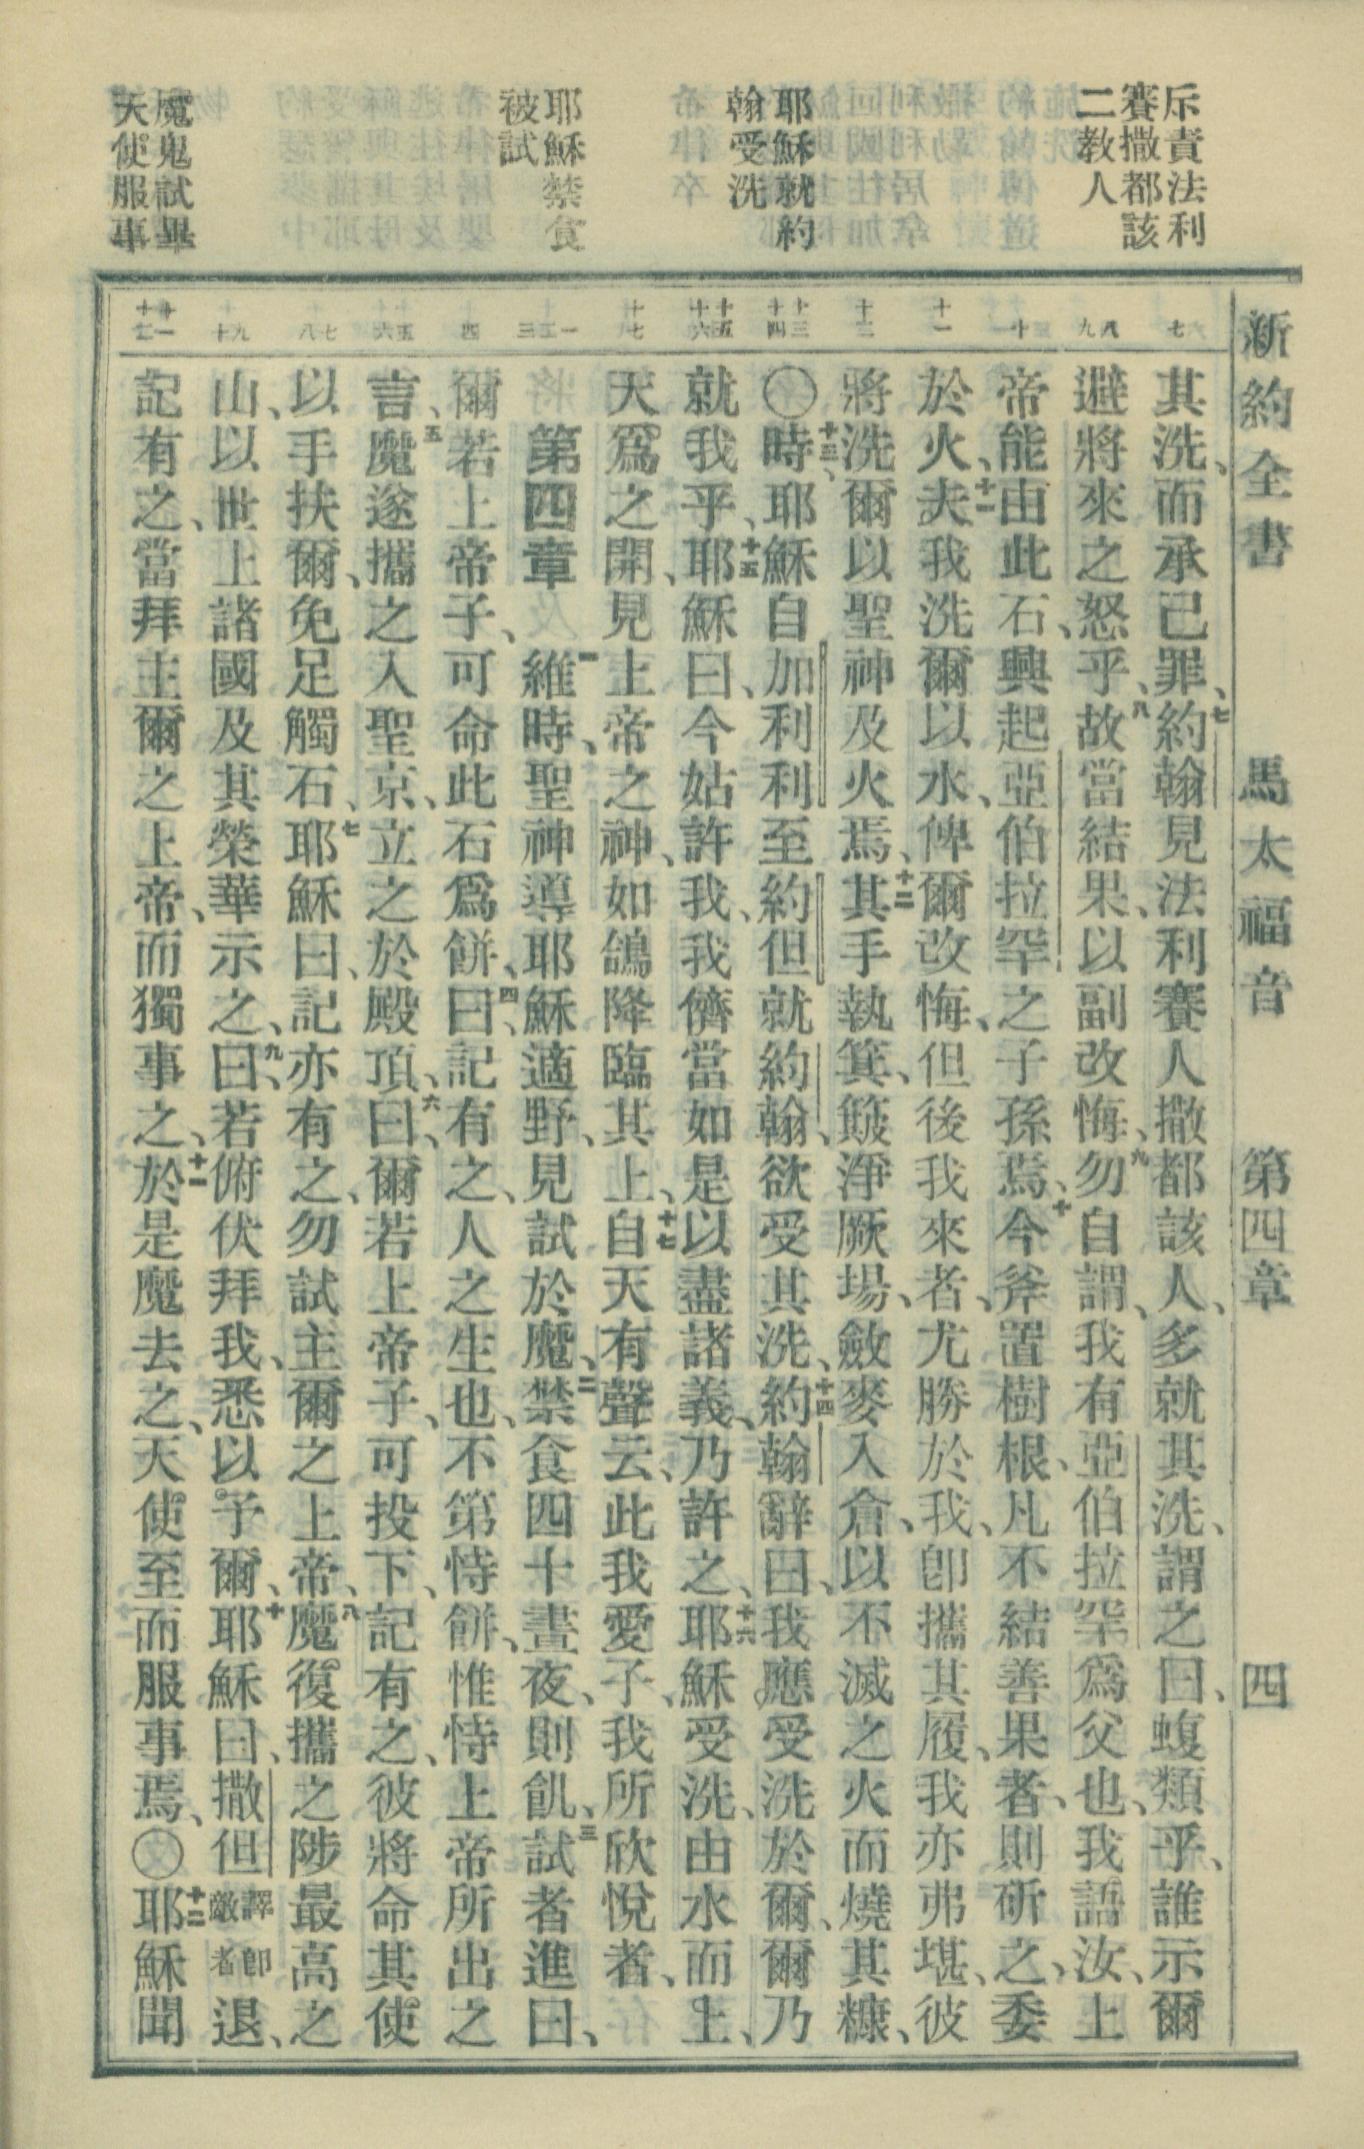 斥責法利
賽撒都該
二教人
耶穌就約
翰受洗
耶穌禁食
被試
魔鬼試畢
天使服事
新約全書 馬太福音 第四章 四
七
八
九
十
十一
十二
十三
十四
十五
十六
十七
一
二
三
四
五
六
七
八
九
十
十一
十二
其洗、而承己罪、七約翰見法利賽人撒都該人、多就其洗、謂之曰、蝮類乎、誰示爾
避將來之怒乎、八故當結果、以副改悔、九勿自謂、我有亞伯拉罕爲父也、我語汝、上
帝能由此石、興起亞伯拉罕之子孫焉、十今斧置樹根、凡不結善果者、則斫之、委
於火、十一夫我洗爾以水、俾爾改悔、但後我來者、尤勝於我、卽攜其履、我亦弗堪、彼
將洗爾以聖神及火焉、十二其手執箕、簸淨厥場、斂麥入倉、以不滅之火而燒其糠、
〇十三時、耶穌自加利利至約但就約翰、欲受其洗、十四約翰辭曰、我應受洗於爾、爾乃
就我乎、十五耶穌曰、今姑許我、我儕當如是以盡諸義、乃許之、十六耶穌受洗、由水而上、
天爲之開、見上帝之神、如鴿降臨其上、十七自天有聲云、此我愛子、我所欣悅者、
第四章 一維時、聖神導耶穌適野、見試於魔、二禁食四十晝夜、則飢、三試者進曰、
爾若上帝子、可命此石爲餅、四曰、記有之、人之生也、不第恃餅、惟恃上帝所出之
言、五魔遂攜之入聖京、立之於殿頂、六曰、爾若上帝子、可投下、記有之、彼將命其使
以手扶爾、免足觸石、七耶穌曰、記亦有之、勿試主爾之上帝、八魔復攜之陟最高之
山、以世上諸國及其榮華示之、九曰、若俯伏拜我、悉以予爾、十耶穌曰、撒但譯卽敵者退、
記有之、當拜主爾之上帝、而獨事之、十一於是魔去之、天使至而服事焉、〇十二耶穌聞